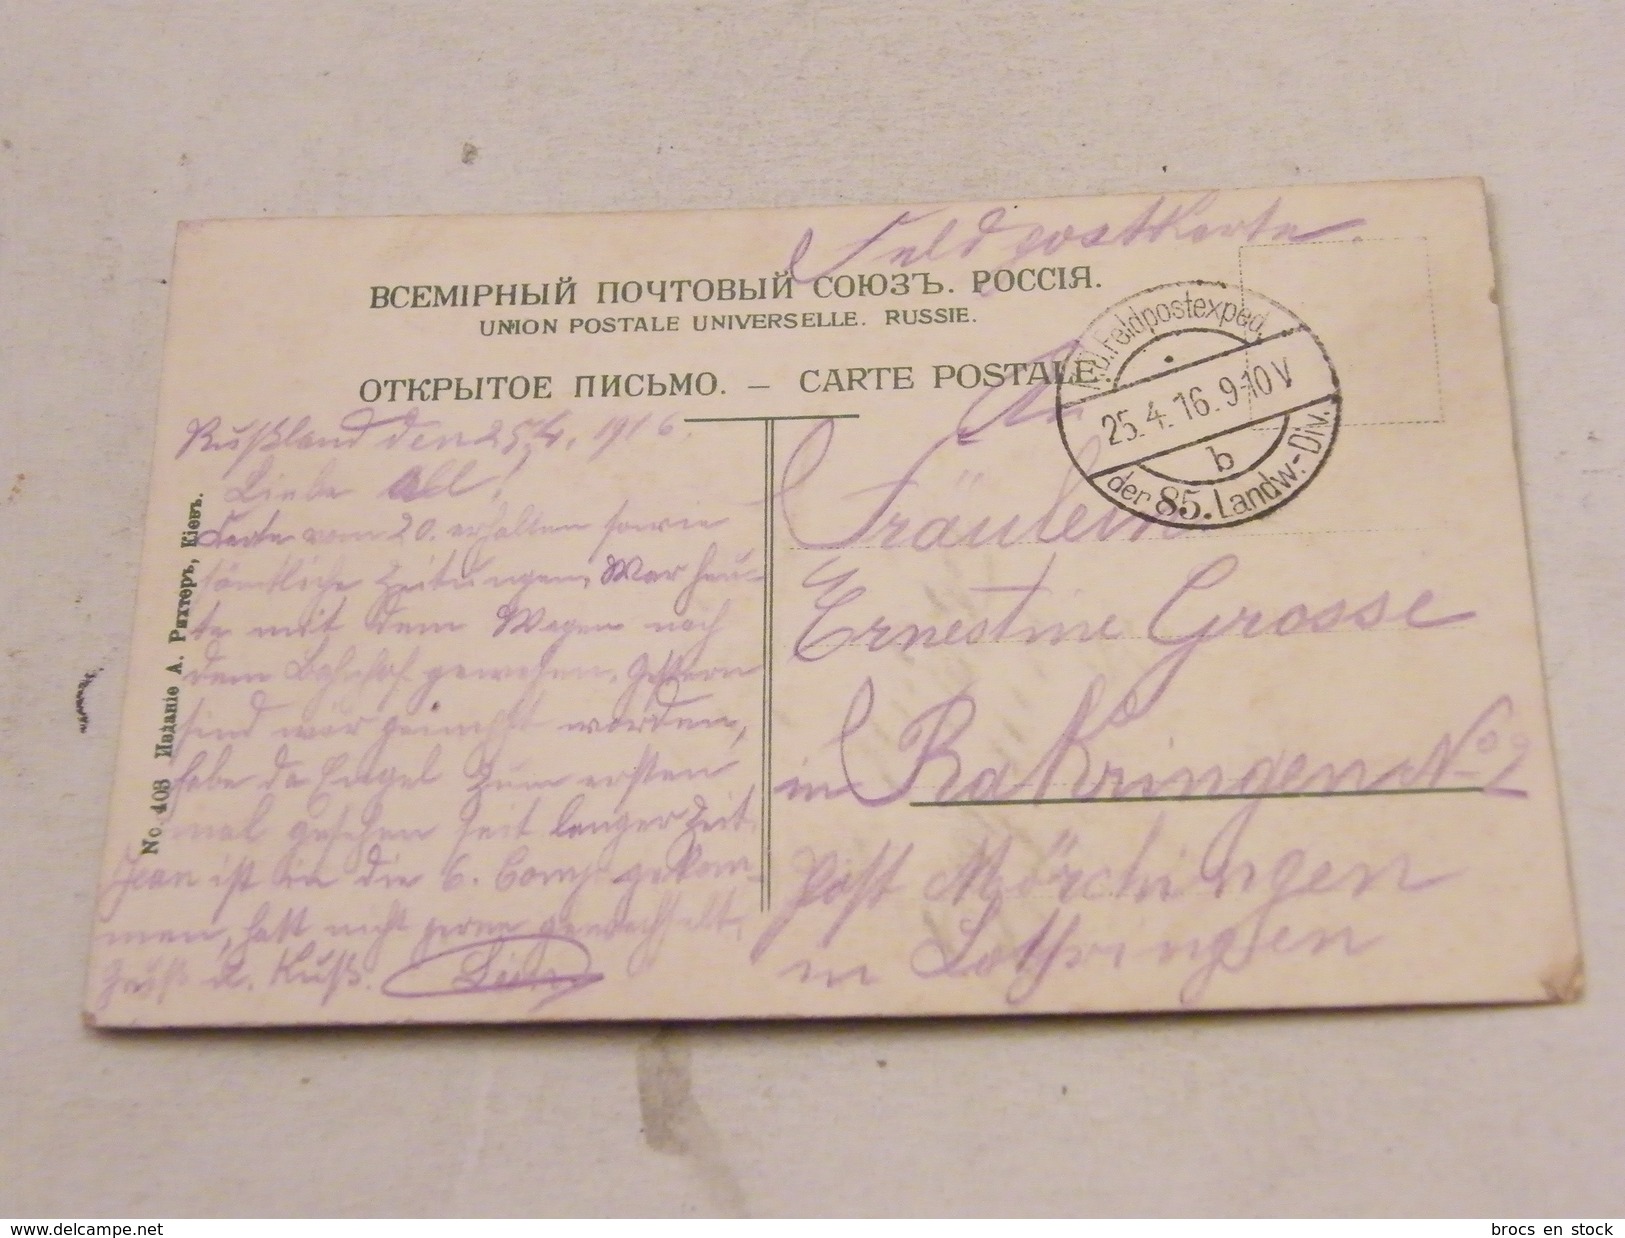 Feldpostkarte.
ВСЕМІРНЫЙ ПОЧТОВЫЙ СОЮЗЪ. РОССІЯ.
UNION POSTALE UNIVERSELLE. RUSSIE.
ОТКРЫТОЕ ПИСЬМО. — CARTE POSTALE.
K.D. Feldpostexped.
25.4.16. 9-10 V
b
der 85. Landw.-Div.
Rußland den 25/4. 1916.
Liebe All!
Karte vom 20. erhalten sowie
sämtliche Zeitungen. War heu-
te mit dem Wagen nach
dem Bahnhof gewesen. Gestern
sind wir geimpft worden,
habe da Engel zum ersten
mal gesehen seit langer Zeit.
Jean ist in die 6. Comp. gekom-
men, hatt nicht gerne gewechselt.
Gruß u. Kuß.
No. 408 Изданіе А. Рихтеръ, Кіевъ.
An
Fräulein
Ernestine Grosse
in Rakringen No 2
Post Mörchingen
in Lothringen
brocs en stock